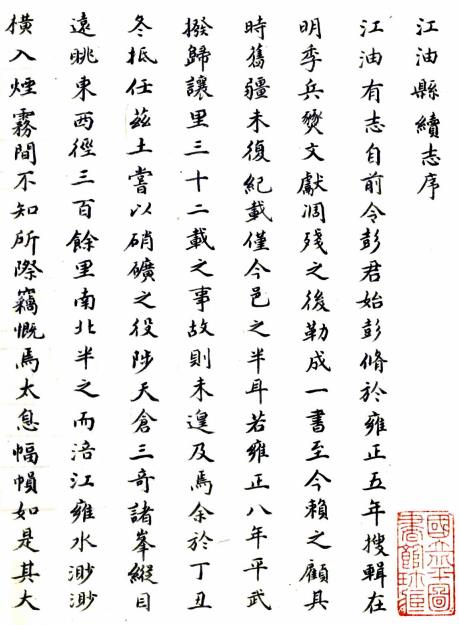 江油縣續志序
江油有志自前令彭君始彭脩於雍正五年搜輯在
明季兵燹文獻凋殘之後勒成一書至今賴之顧其
時舊疆未復紀載僅今邑之半耳若雍正八年平武
撥歸讓里三十二載之事故則未遑及焉余於丁丑
冬抵任茲土嘗以硝礦之役陟天倉三奇諸峯縱目
遠眺東西徑三百餘里南北半之而涪江雍水渺渺
橫入煙霧間不知所際竊慨焉太息幅幀如是其大
國立北平圖
書館